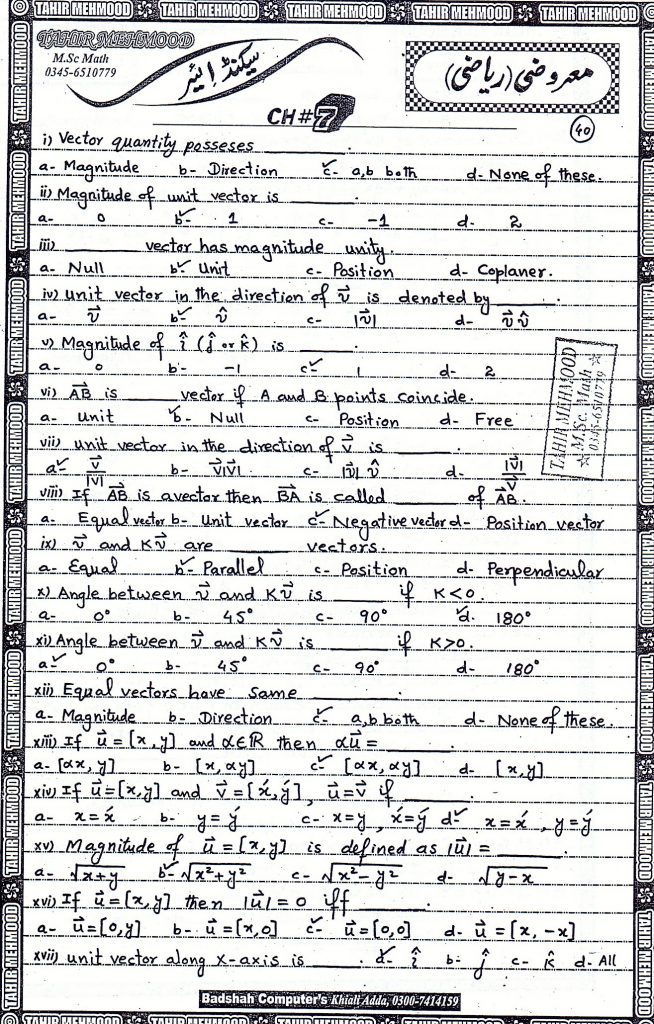 TAHIR MEHMOOD TAHIR MEHMOOD TAHIR MEHMOOD TAHIR MEHMOOD TAHIR MEHMOOD
TAHIR MEHMOOD
M.Sc Math
0345-6510779
سیکنڈ ائیر
معروضی (ریاضی)
CH#7
40
i) Vector quantity posseses ______.
a- Magnitude b- Direction c- a,b both d- None of these.
ii) Magnitude of unit vector is ______.
a- 0 b- 1 c- -1 d- 2
iii) ______ vector has magnitude unity.
a- Null b- Unit c- Position d- Coplaner.
iv) Unit vector in the direction of v⃗ is denoted by ______.
a- v⃗ b- v̂ c- |v⃗| d- v⃗ v̂
v) Magnitude of î (ĵ or k̂) is ______.
a- 0 b- -1 c- 1 d- 2
vi) AB⃗ is ______ vector if A and B points coincide.
a- Unit b- Null c- Position d- Free
vii) Unit vector in the direction of v⃗ is ______
a- v⃗/|v⃗| b- v⃗|v⃗| c- |v⃗| v̂ d- |v⃗|/v⃗
viii) If AB⃗ is a vector then BA⃗ is called ______ of AB⃗.
a- Equal vector b- Unit vector c- Negative vector d- Position vector
ix) v⃗ and Kv⃗ are ______ vectors.
a- Equal b- Parallel c- Position d- Perpendicular
x) Angle between v⃗ and Kv⃗ is ______ if K<0.
a- 0° b- 45° c- 90° d. 180°
xi) Angle between v⃗ and Kv⃗ is ______ if K>0.
a- 0° b- 45° c- 90° d- 180°
xii) Equal vectors have same ______.
a- Magnitude b- Direction c- a,b both d- None of these.
xiii) If u⃗ = [x,y] and α∈R then αu⃗ = ______.
a- [αx, y] b- [x, αy] c- [αx, αy] d- [x,y]
xiv) If u⃗=[x,y] and v⃗=[x́,ý], u⃗=v⃗ if ______
a- x=x́ b- y=ý c- x=y, x́=ý d- x=x́, y=ý
xv) Magnitude of u⃗ = [x,y] is defined as |u⃗| = ______.
a- √x+y b- √x²+y² c- √x²-y² d- √y-x
xvi) If u⃗=[x,y] then |u⃗| = 0 iff ______.
a- u⃗=[0,y] b- u⃗=[x,0] c- u⃗=[0,0] d- u⃗=[x,-x]
xvii) unit vector along x-axis is ______. a- î b- ĵ c- k̂ d- All
TAHIR MEHMOOD
M.Sc. Math
0345-6510779
Badshah Computer's Khiali Adda, 0300-7414159